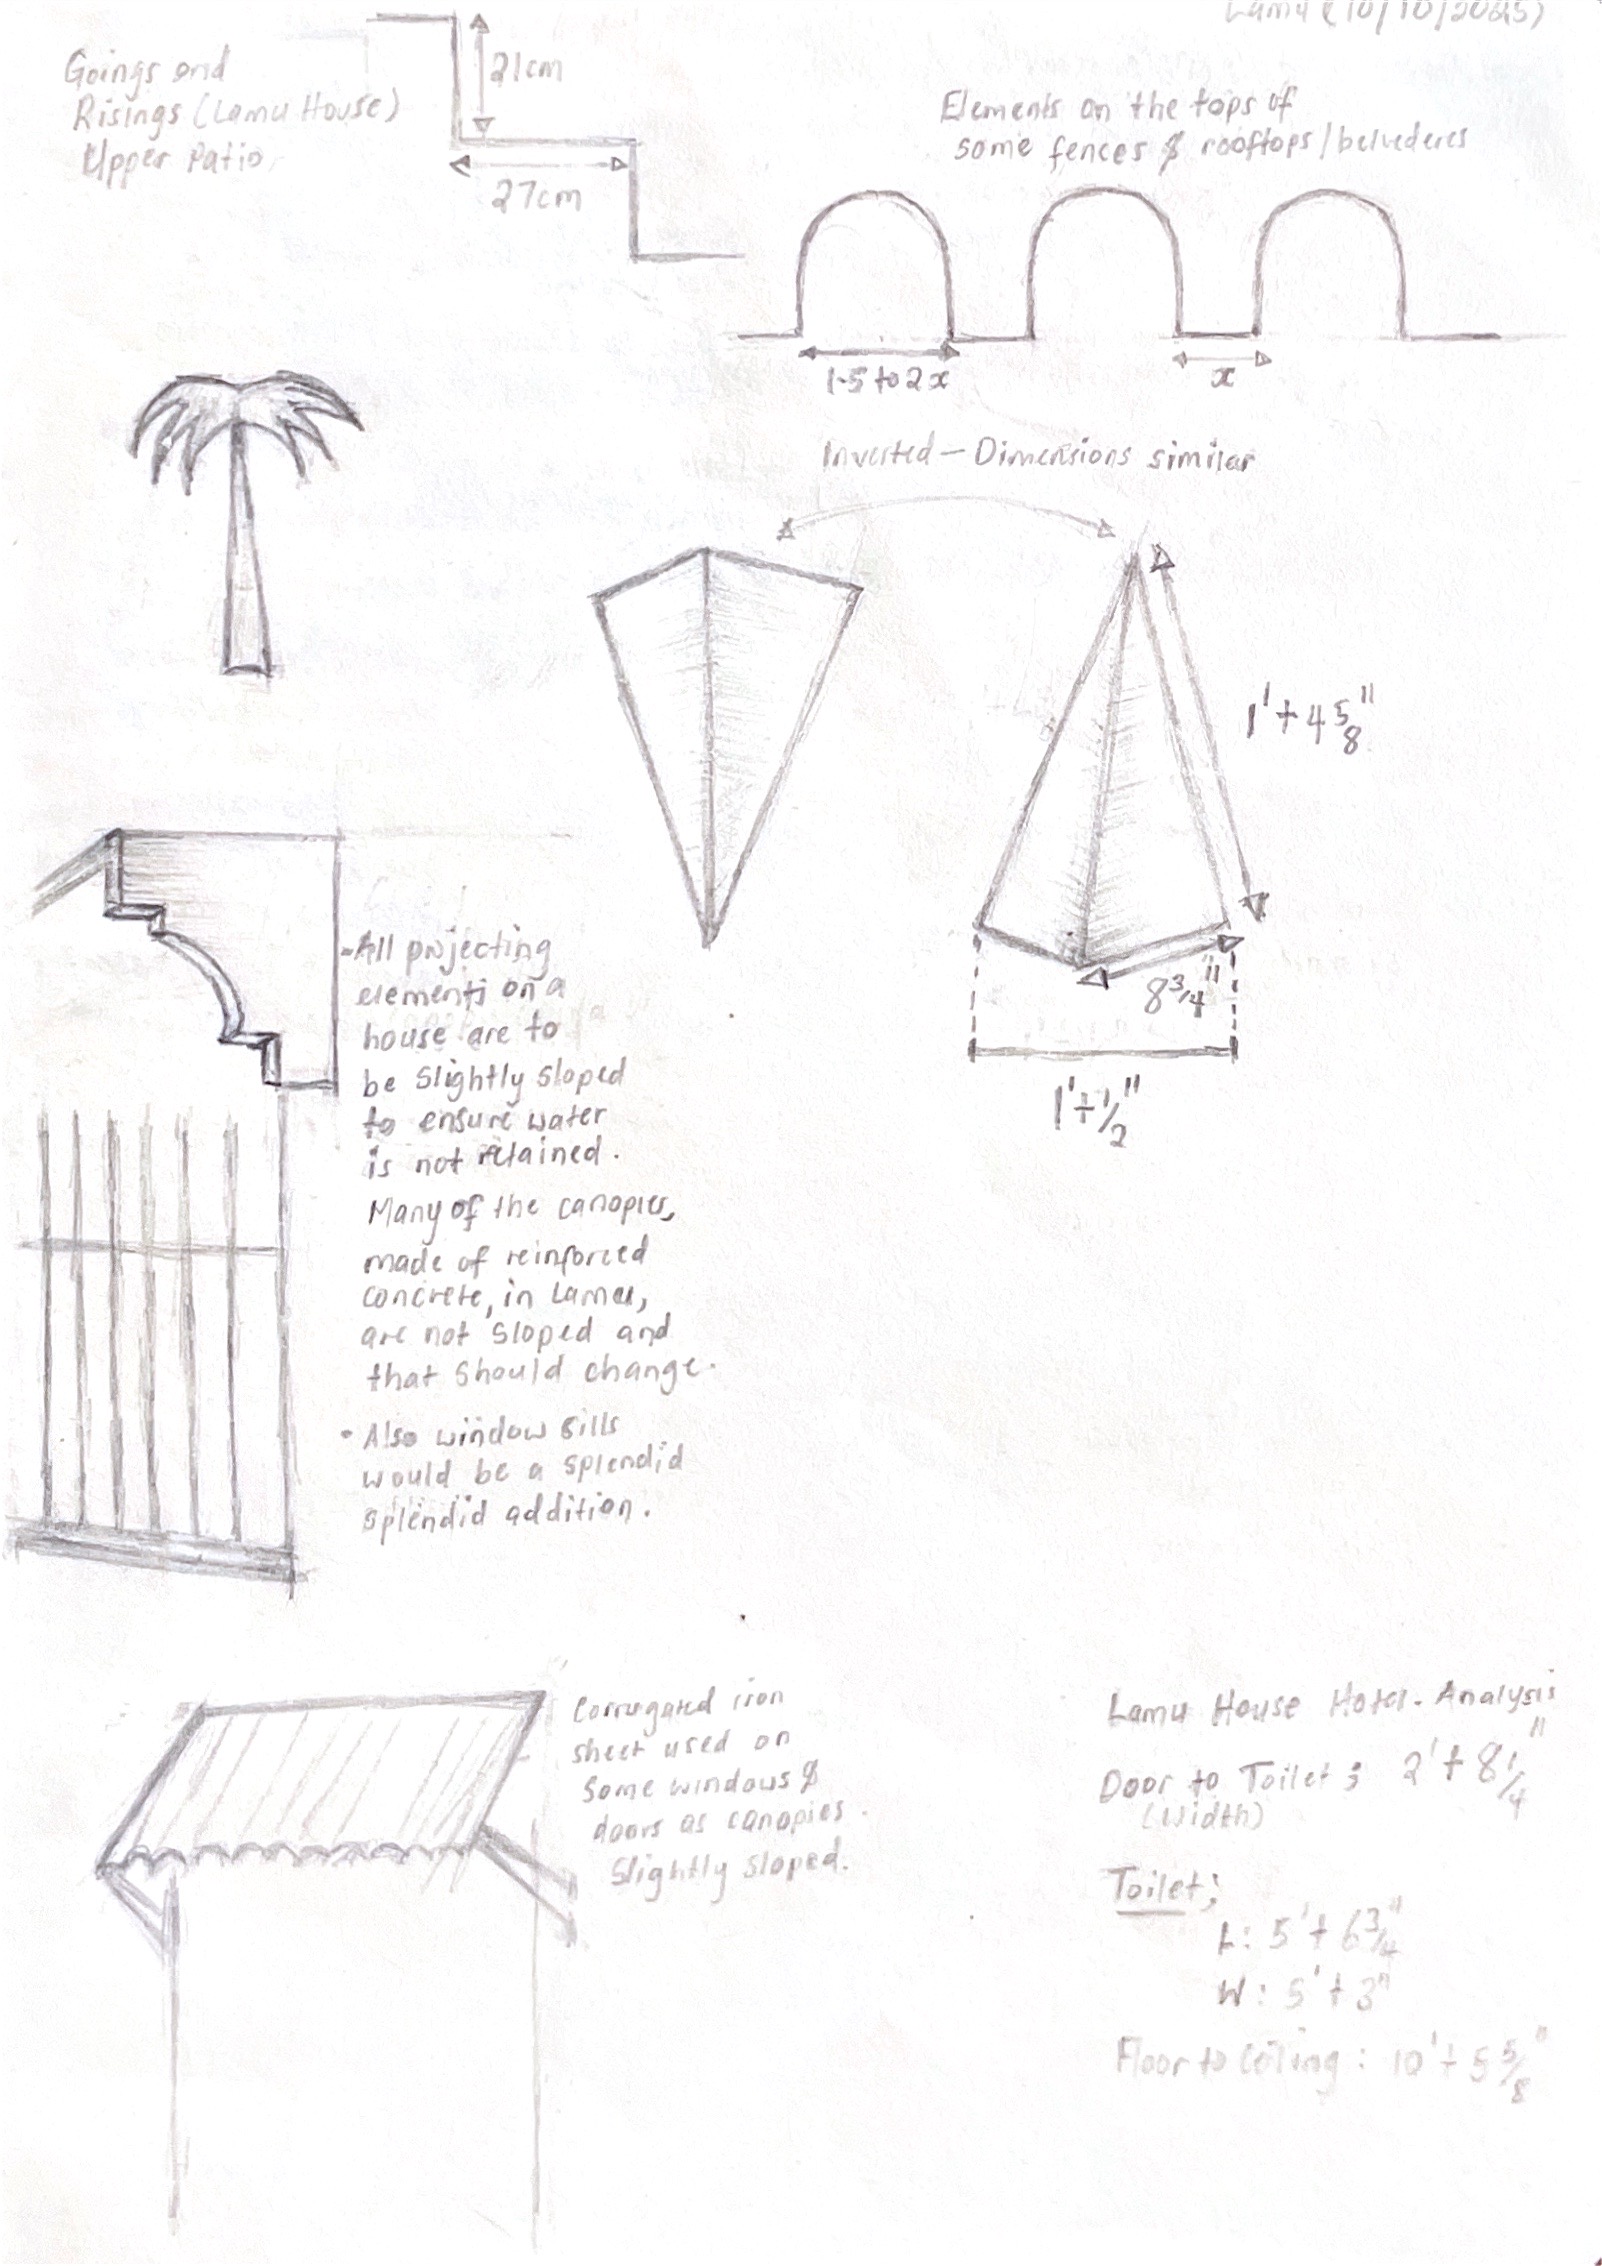 Lamu (10/10/2025)
Goings and
Risings (Lamu House)
Upper Patio
21cm
27cm
Elements on the tops of
some fences & rooftops/belvederes
1.5 to 2x
x
Inverted — Dimensions similar
1' + 4 5/8"
8 3/4"
1' + 1/2"
- All projecting
elements on a
house are to
be slightly sloped
to ensure water
is not retained.
Many of the canopies,
made of reinforced
concrete, in Lamu,
are not sloped and
that should change.
• Also window sills
would be a splendid
splendid addition.
Corrugated iron
sheet used on
some windows &
doors as canopies.
Slightly sloped.
Lamu House Hotel - Analysis
Door to Toilet ; 2' + 8 1/4"
(Width)
Toilet;
L: 5' + 6 3/4"
W: 5' + 3"
Floor to Ceiling : 10' + 5 5/8"